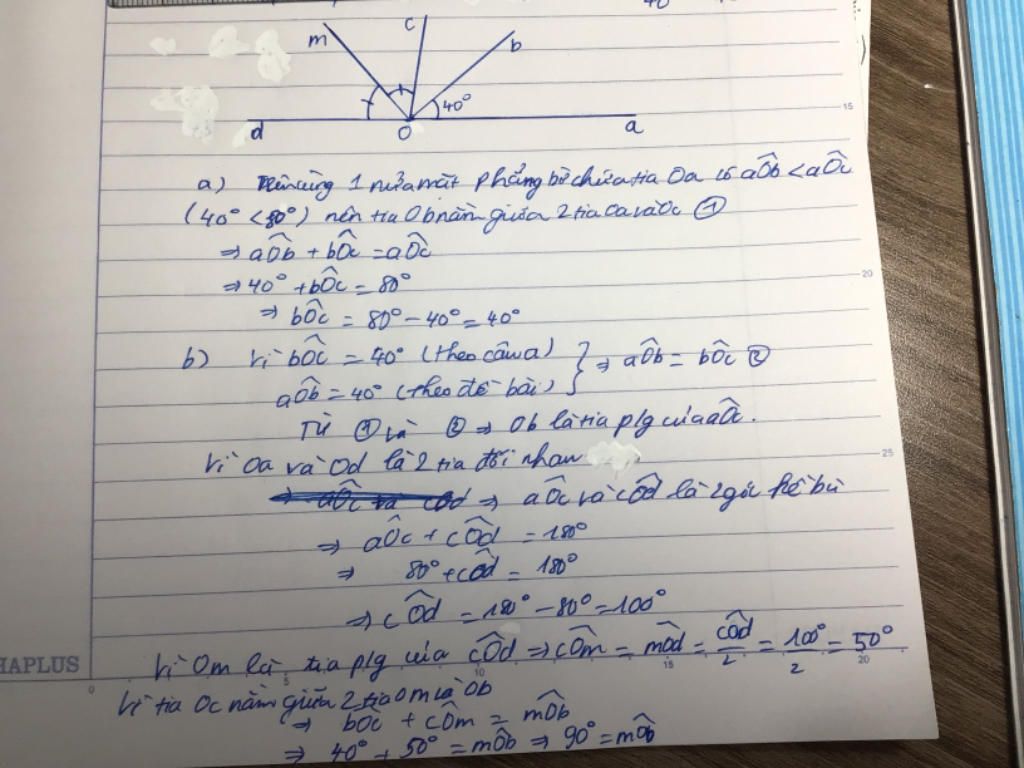 m c b
40°
d O a
a) Trên cùng 1 nửa mặt phẳng bờ chứa tia Oa có aÔb < aÔc
(40° < 80°) nên tia Ob nằm giữa 2 tia Oa và Oc ①
⇒ aÔb + bÔc = aÔc
⇒ 40° + bÔc = 80°
⇒ bÔc = 80° - 40° = 40°
b) Vì bÔc = 40° (theo câu a) } ⇒ aÔb = bÔc ②
aÔb = 40° (theo đề bài)
Từ ① và ② ⇒ Ob là tia p/g của aÔc.
Vì Oa và Od là 2 tia đối nhau
⇒ aÔc và cÔd là 2 góc kề bù
⇒ aÔc + cÔd = 180°
⇒ 80° + cÔd = 180°
⇒ cÔd = 180° - 80° = 100°
Vì Om là tia p/g của cÔd ⇒ cÔm = mÔd = cÔd/2 = 100°/2 = 50°
HAPLUS
Vì tia Oc nằm giữa 2 tia Om và Ob
⇒ bÔc + cÔm = mÔb
⇒ 40° + 50° = mÔb ⇒ 90° = mÔb